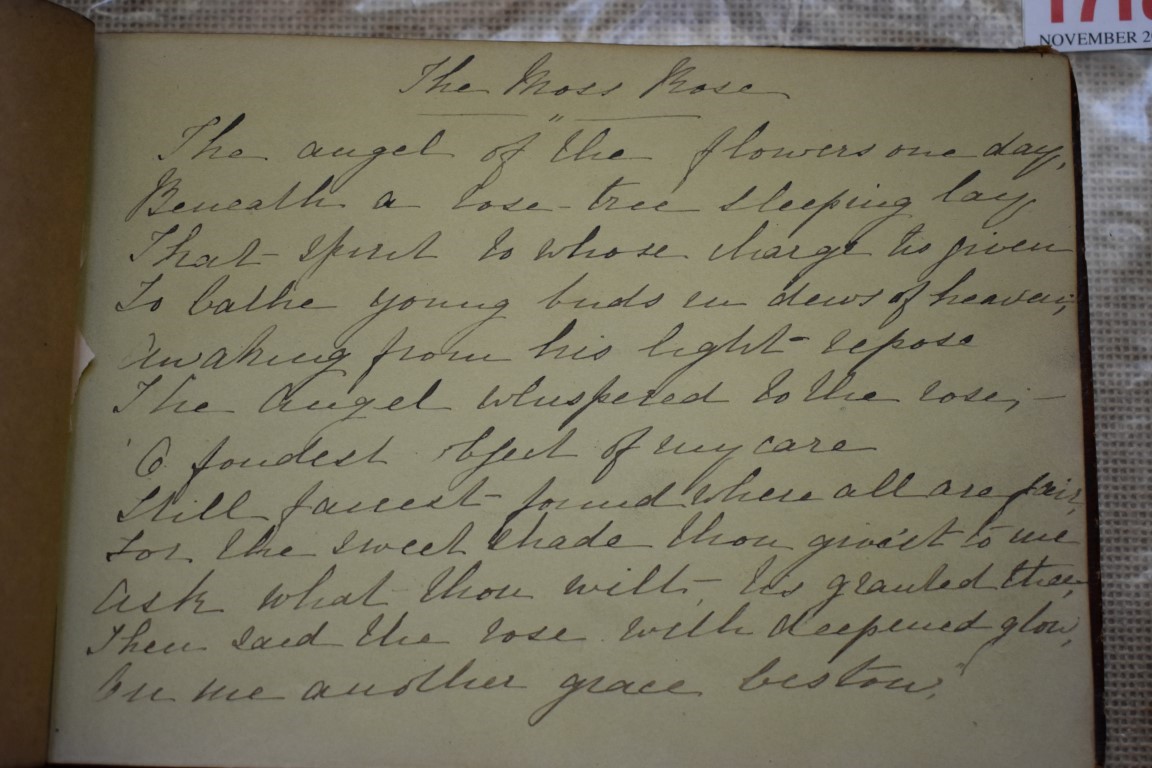 The Moss Rose
"
The angel of the flowers one day,
Beneath a rose-tree sleeping lay,
That spirit to whose charge tis given
To bathe young buds in dews of heaven;
Awaking from his light repose
The Angel whispered to the rose; -
'O fondest object of my care
Still fairest found where all are fair,
For the sweet shade thou giv'st to me
Ask what thou wilt, tis granted thee,
Then said the rose with deepened glow,
On me another grace bestow;
NOVEMBER